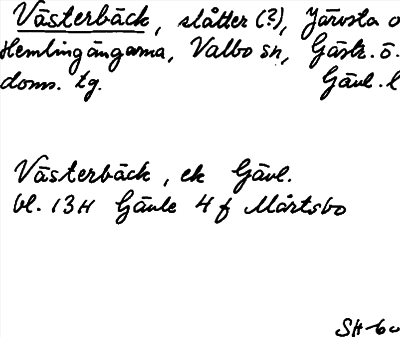 Västerbäck, slåtter (?), Järvsta o
Hemlingängarna, Valbo sn, Gästr. ö.
doms. tg. Gävl. l
Västerbäck, ek Gävl.
bl. 13H Gävle 4f Mårtsbo
SH-60